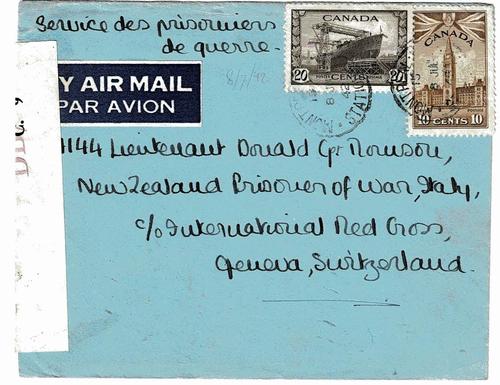 Service des prisonniers
de guerre.
CANADA
20 CENTS 20
CANADA
10 CENTS 10
8/7/42
Y AIR MAIL
PAR AVION
1144 Lieutenant Donald G. Thomson,
New Zealand Prisoner of War, Italy,
c/o International Red Cross,
Geneva, Switzerland.